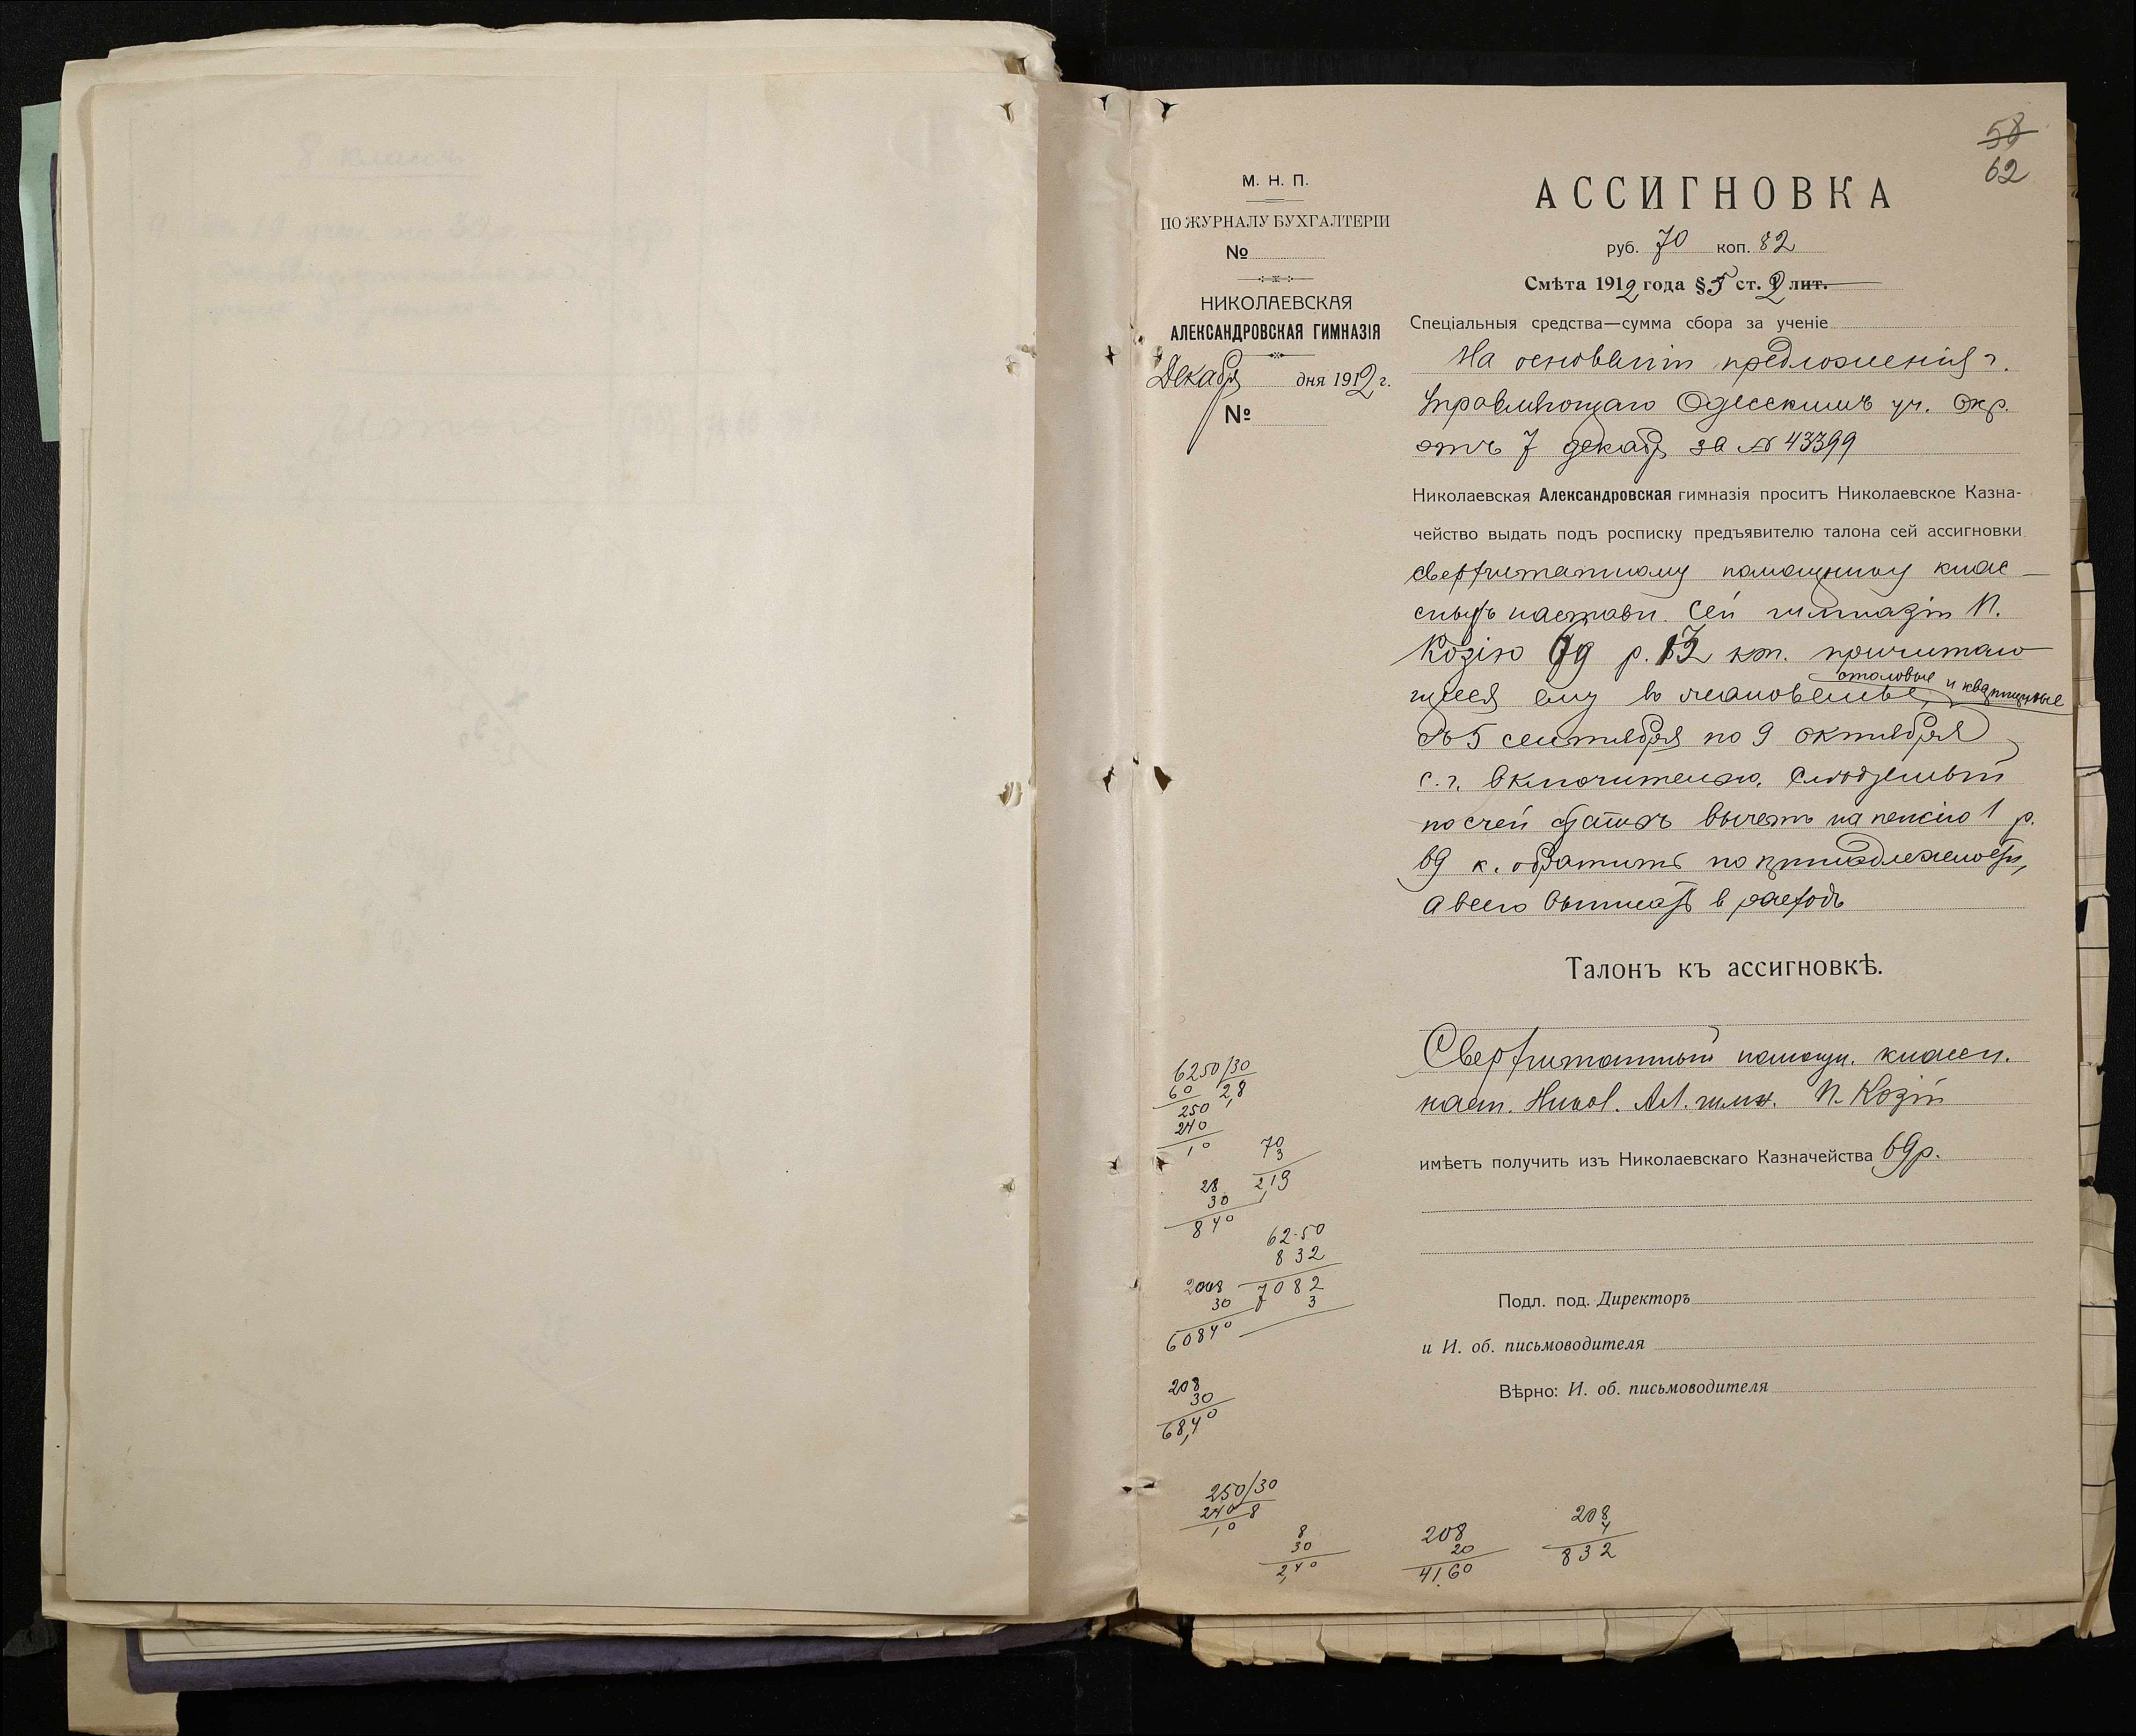 58
62
М. Н. П.
ПО ЖУРНАЛУ БУХГАЛТЕРІИ
№
НИКОЛАЕВСКАЯ
АЛЕКСАНДРОВСКАЯ ГИМНАЗІЯ
Декабр дня 1912 г.
№
АССИГНОВКА
руб. 70 коп. 82
Смѣта 1912 года § 5 ст. 2 лит.
Спеціальныя средства—сумма сбора за ученіе
На основаніи предложенія г.
Управляющаго Одесскимъ уч. Окр.
отъ 7 декаб за № 43399
Николаевская Александровская гимназія проситъ Николаевское Казна-
чейство выдать подъ росписку предъявителю талона сей ассигновки
сверхштатному помощнику клас-
сныхъ настави. сей гимназіи П.
Козію 69 р. кп. причитаю
столовые и квартирные
щееся ему
съ 5 сентября по 9 октября
с. г. включительно.
вычетъ на пенсію 1 р.
69 к. обратить по принадлежности,
а всего выписать в расходъ
Талонъ къ ассигновкѣ.
Сверхштатный помощн. классн.
наст. Никол. Ал. гимн. П. Козій
имѣетъ получить изъ Николаевскаго Казначейства 69 р.
Подл. под. Директоръ
и И. об. письмоводителя
Вѣрно: И. об. письмоводителя
6250/30
60 2,8
250
240
10
70
3
2,19
28
30
840
62-50
832
7082
3
2008
30
60840
208
30
68,40
250/30
240 8
10
8
30
2,40
208
20
41.60
208
4
832